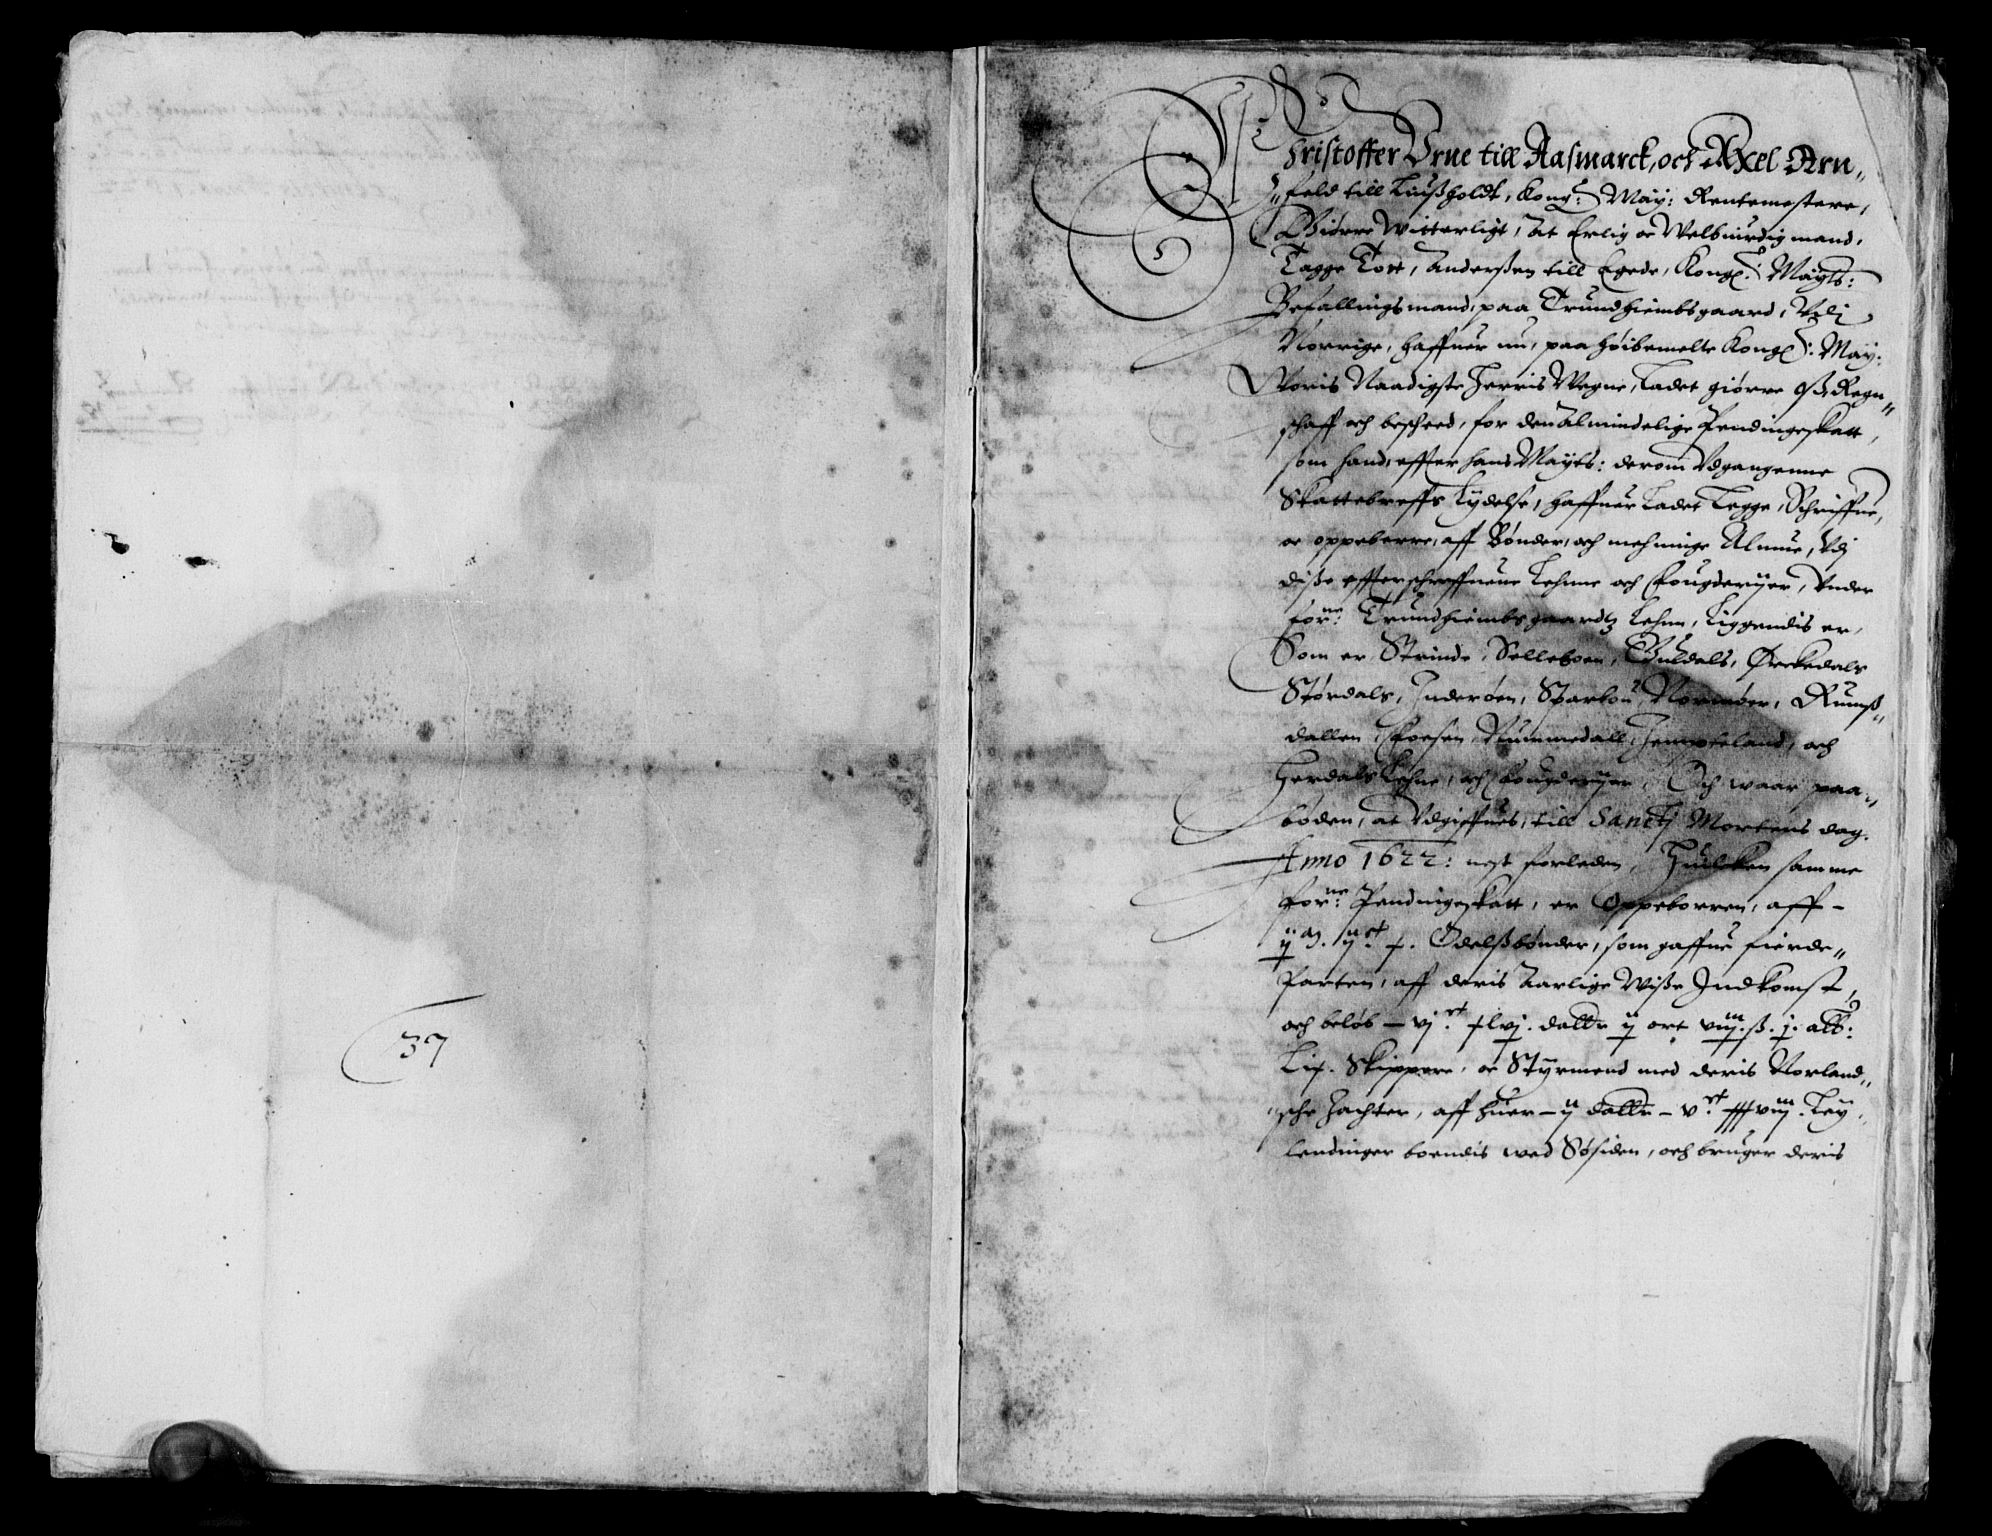 37
Christoffer Urne till Aasmarck, och Axel Arn„
„feld till Liußholdt, Kong: May: Rentemestere,
Giörre Witterligt, At Erlig oc Welbiurdig mand,
Tagge Tott, Anderßen till Egede, Kong: Mayts:
Befallingsmand, paa Trundhiembsgaard, Udj
Norrige, haffuer nu, paa høibemelte Kong: May:
Woris Naadigste Herris Wegne, Ladet giörre oß Regn„
schaff och bescheed, for den Almindelige Pendingeskatt,
som hand, effter hans Mayts: derom Udgangenne
Skattebreffs Lydelse, haffuer Ladet Legge, Schriffue,
oc oppeberre, aff Bønder, och mehninge Almue, Udj
diße effterschreffneue Lehnne och Fougderijer, Under
forne: Trundhiembsgaardtz Lehnn, Liggendis er,
Som er Strinde, Selleboen, Guldals, Ørckedals
Størdals, Inderøen, Sparbou, Normøer, Rumß„
dallen, Foesen, Nummedall, Jempteland, och
Herdals Lehne, och Fougderijer, Och waar paa„
böden, at Udgiffues, till Sanctj Mortens dag.
Anno 1622: nest forleden, Huilcken samme
forne: Pendingeskatt, er Oppeborren, aff –
ij m. ij ct x. Odelßbönder, som gaffue fierde„
Parten, aff deris Aarlige Wiße Indkomst,
och beløb – vj ct xlvj. dallr ij ort viij ß. j. alb:
Lix. Skippere, oc Styrmend med deris Norland„
„sche Jachter, aff huer – ij dallr – v ct xxxviij. Ley„
lendinger boendis wed Søsiden, och bruger deris